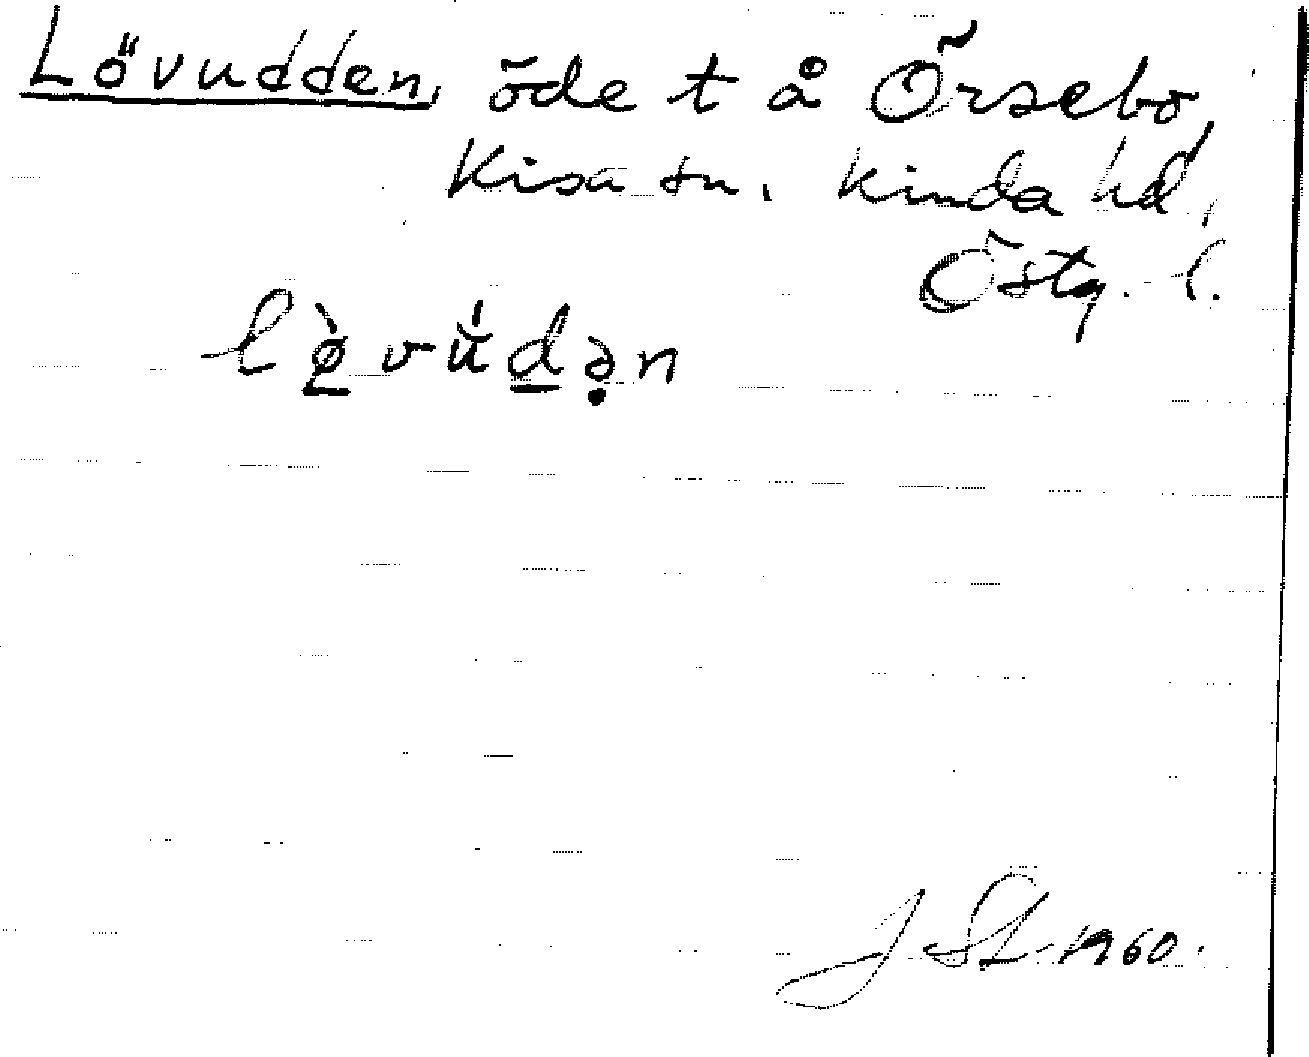 Lövudden, öde t å Örsebo,
Kisa sn. Kinda hd,
Östg. l.
lø̠̀vú̆d̲ə̣n
J St 1960.